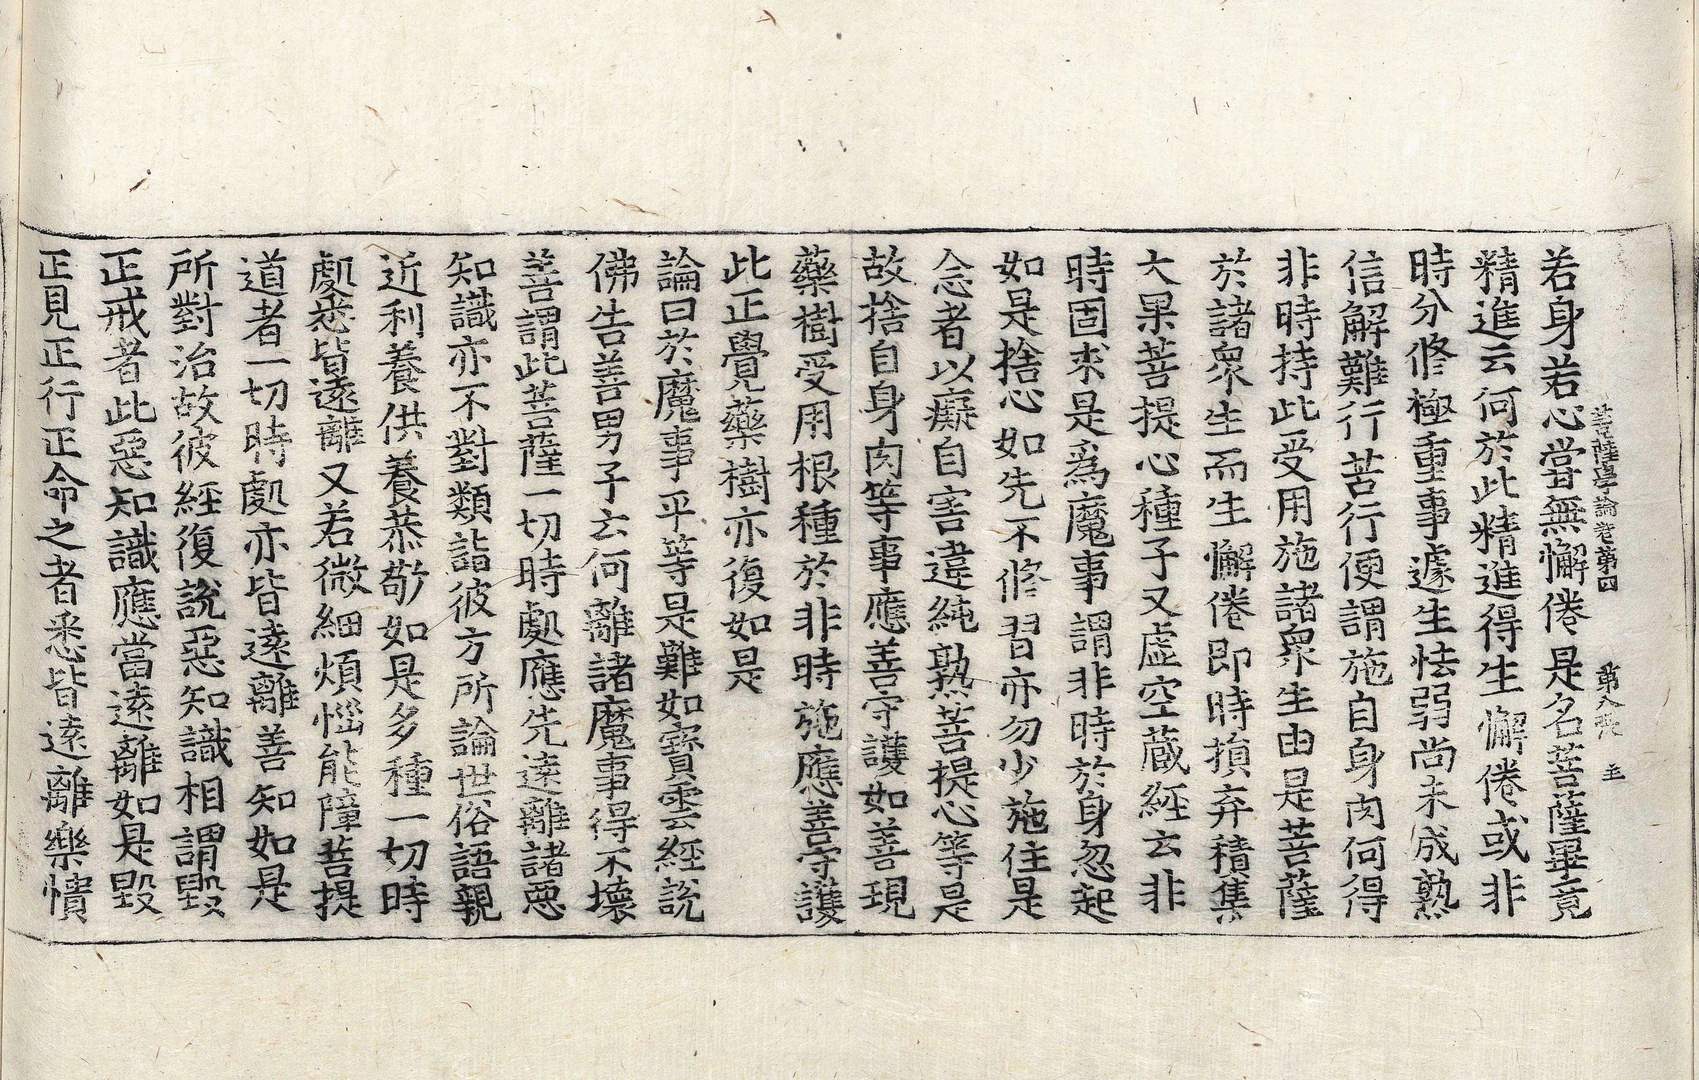 菩薩學論卷第四 第八張 主
若身若心當無懈倦是名菩薩畢竟
精進云何於此精進得生懈倦或非
時分修極重事遽生怯弱尚未成熟
信解難行苦行便謂施自身肉何得
非時持此受用施諸衆生由是菩薩
於諸衆生而生懈倦即時損弃積集
大果菩提心種子又虛空藏經云非
時固求是爲魔事謂非時於身忽起
如是捨心如先不修習亦勿少施住是
念者以癡自害違純熟菩提心等是
故捨自身肉等事應善守護如善現
藥樹受用根種於非時施應善守護
此正覺藥樹亦復如是
論曰於魔事平等是難如寶雲經說
佛告善男子云何離諸魔事得不壞
善謂此菩薩一切時處應先遠離諸惡
知識亦不對類詣彼方所論世俗語親
近利養供養恭敬如是多種一切時
處悉皆遠離又若微細煩惱能障菩提
道者一切時處亦皆遠離善知如是
所對治故彼經復說惡知識相謂毀
正戒者此惡知識應當遠離如是毀
正見正行正命之者悉皆遠離樂憒